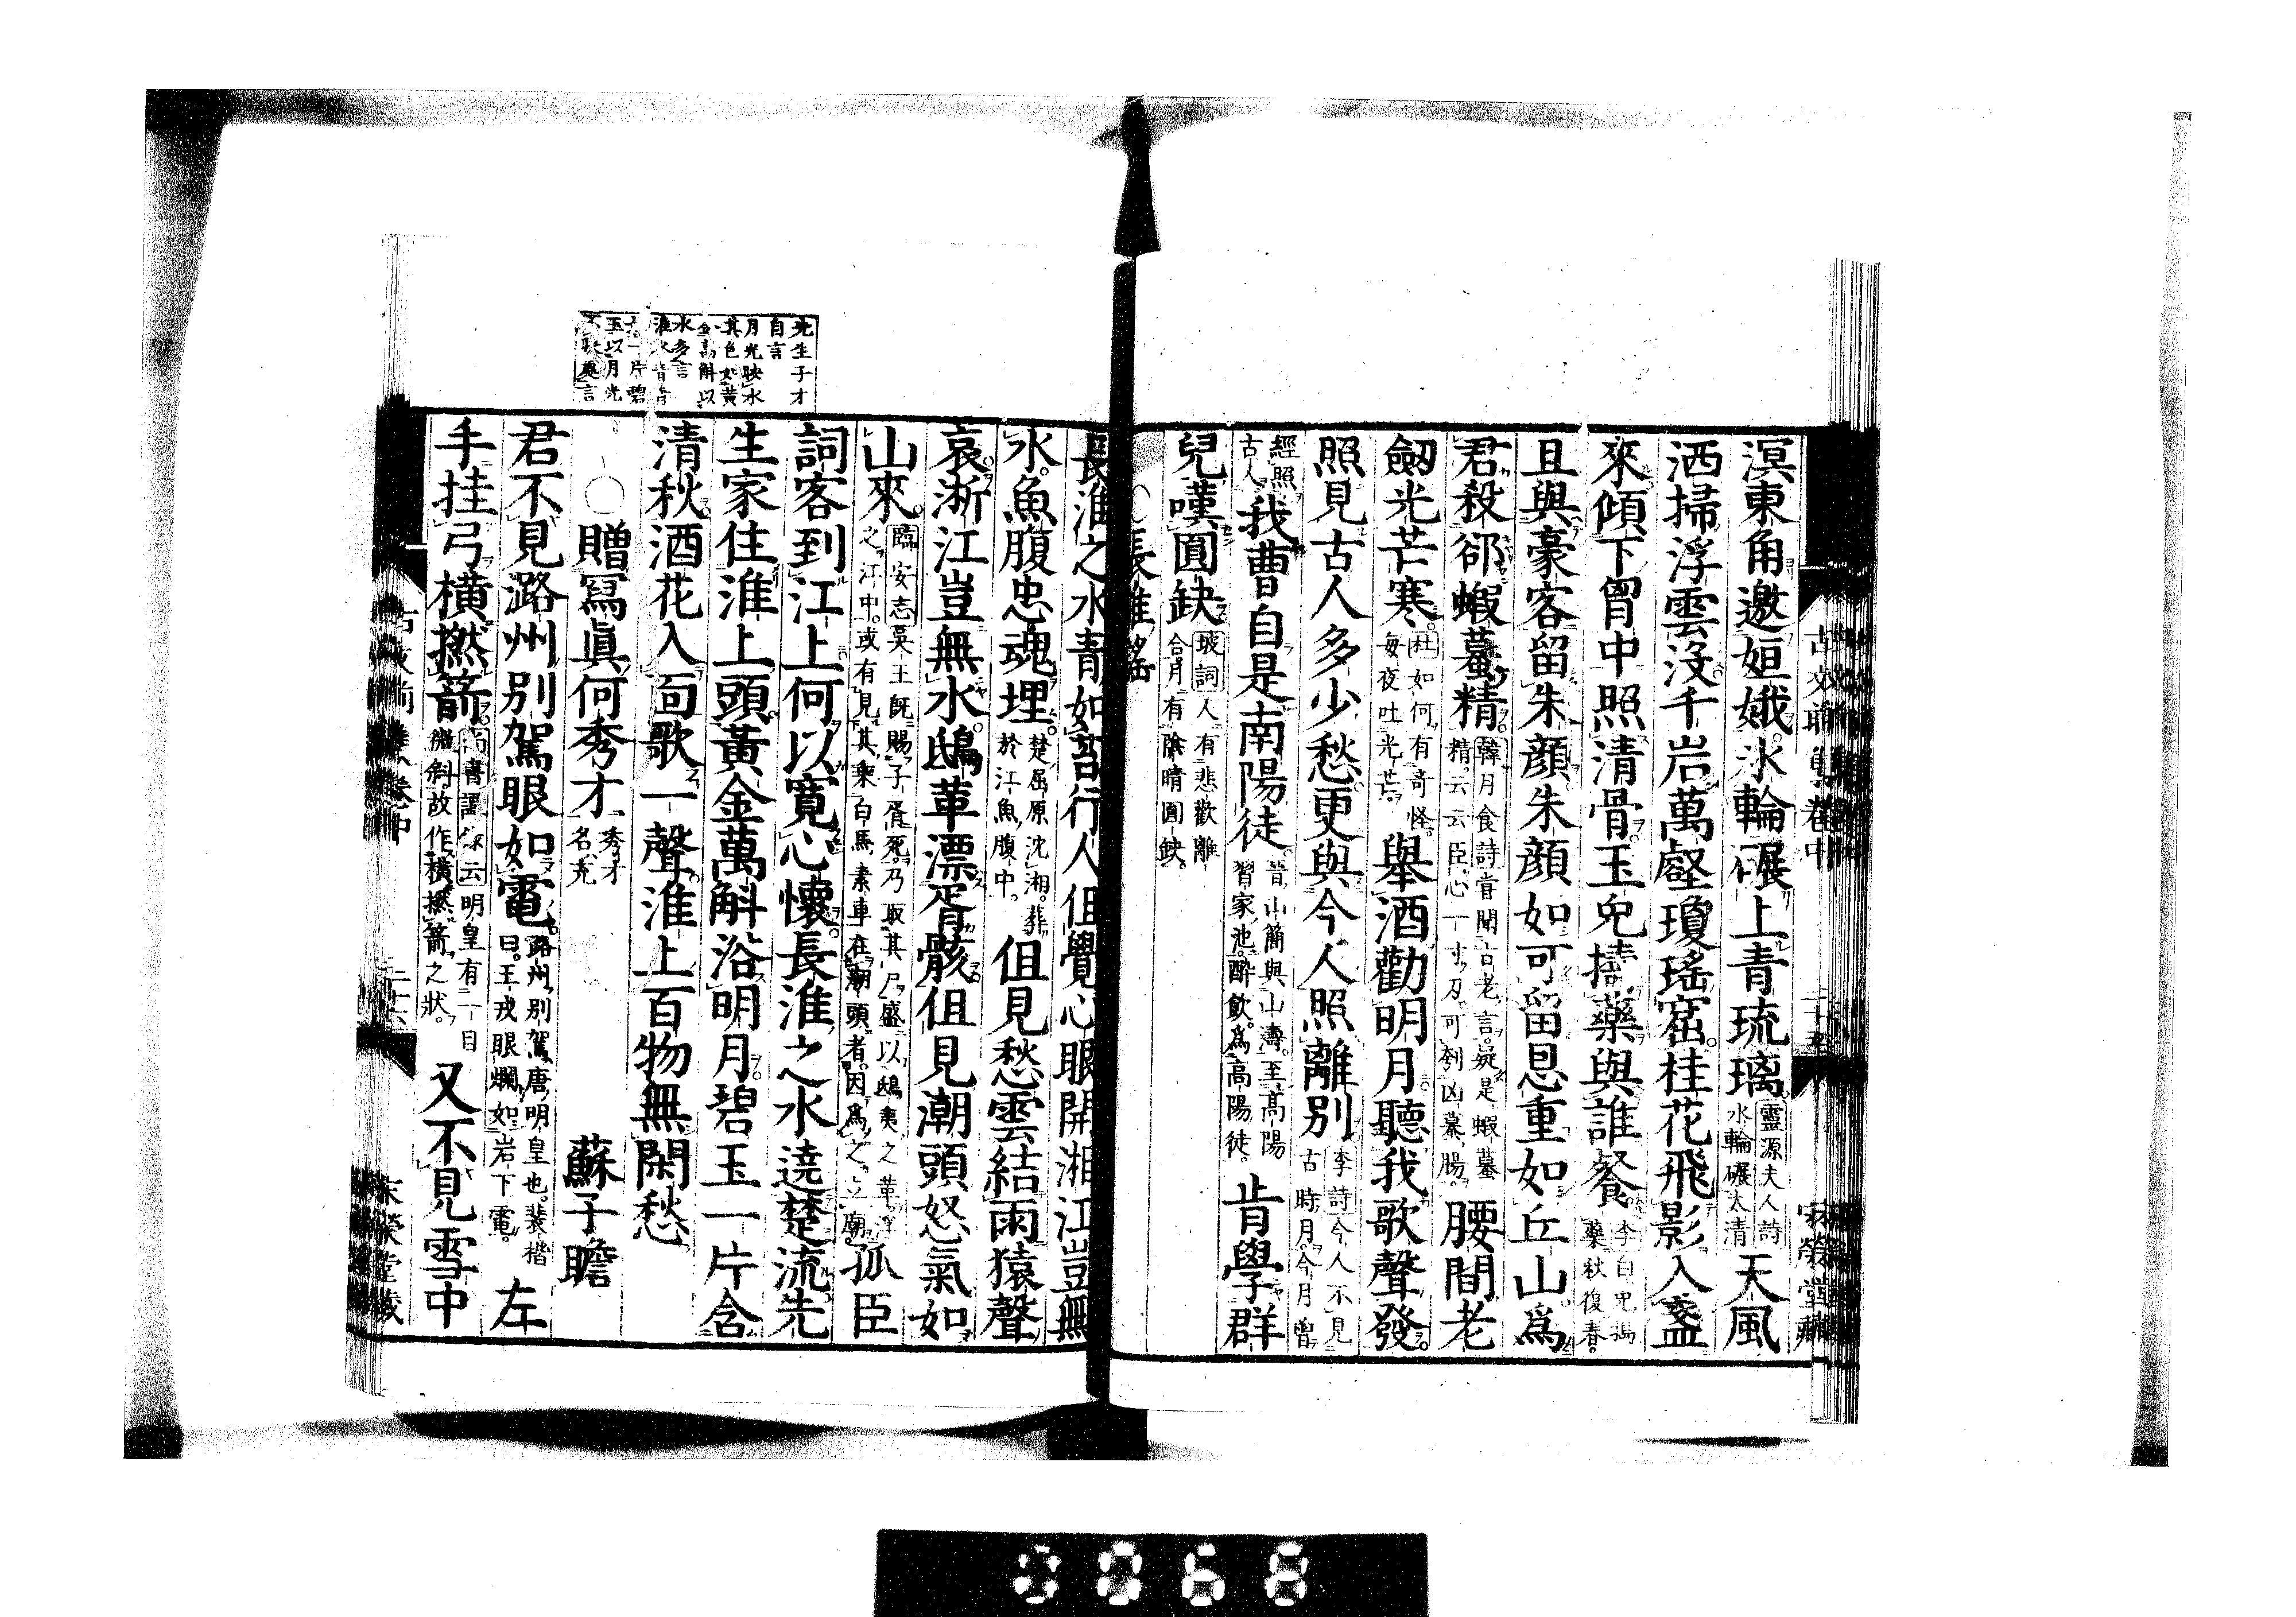 溟東角邀姮娥氷輪碾上青琉璃靈源夫人詩水輪碾太清天風
洒掃浮雲沒千岩萬壑瓊瑤窟桂花飛影入盞
來傾下胷中照清骨玉兔擣藥與誰餐李白兔搗藥秋復春
且與豪客留朱顏朱顏如可留恩重如丘山爲
君殺却蝦蟇精韓月食詩嘗聞古老言疑是蝦蟇精云云臣心一寸刃可刳凶蟇腸腰間老
劒光芒寒杜如何有奇怪每夜吐光芒舉酒勸明月聽我歌聲發
照見古人多少愁更與今人照離別李詩今人不見古時月今月曾
經照古人我曹自是南陽徒昔山簡與山濤至高陽習家池醉飲爲高陽徒肯學群
兒嘆圓缺坡詞人有悲歡離合月有陰晴圓缺
長淮謠
古文前集卷中
二十五
長淮之水青如苔行人但覺心眼開湘江豈無
水魚腹忠魂埋楚屈原沈湘葬於江魚腹中但見愁雲結雨猿聲
哀浙江豈無水鴟革漂胥骸但見潮頭怒氣如
山來臨安志吳王既賜子胥死乃取其尸盛以鴟夷之革浮之江中或有見其乘白馬素車在潮頭者因爲之立廟孤臣
詞客到江上何以寬心懷長淮之水遶楚流先
生家住淮上頭黃金萬斛浴明月碧玉一片含
清秋酒花入面歌一聲淮上百物無閑愁
先生子才
自言
月光映水
其色如黃
金萬斛以
水多言
淮水清
一片碧
玉以月光
贈寫眞何秀才秀才名充 蘇子瞻
君不見潞州別駕眼如電潞州別駕唐明皇也裴楷曰王戎眼爛如岩下電左
手挂弓橫撚箭尚書譚錄云明皇有一目微斜故作橫撚箭之狀又不見雪中
古文前集卷中
二十六
宋榮堂藏
0068